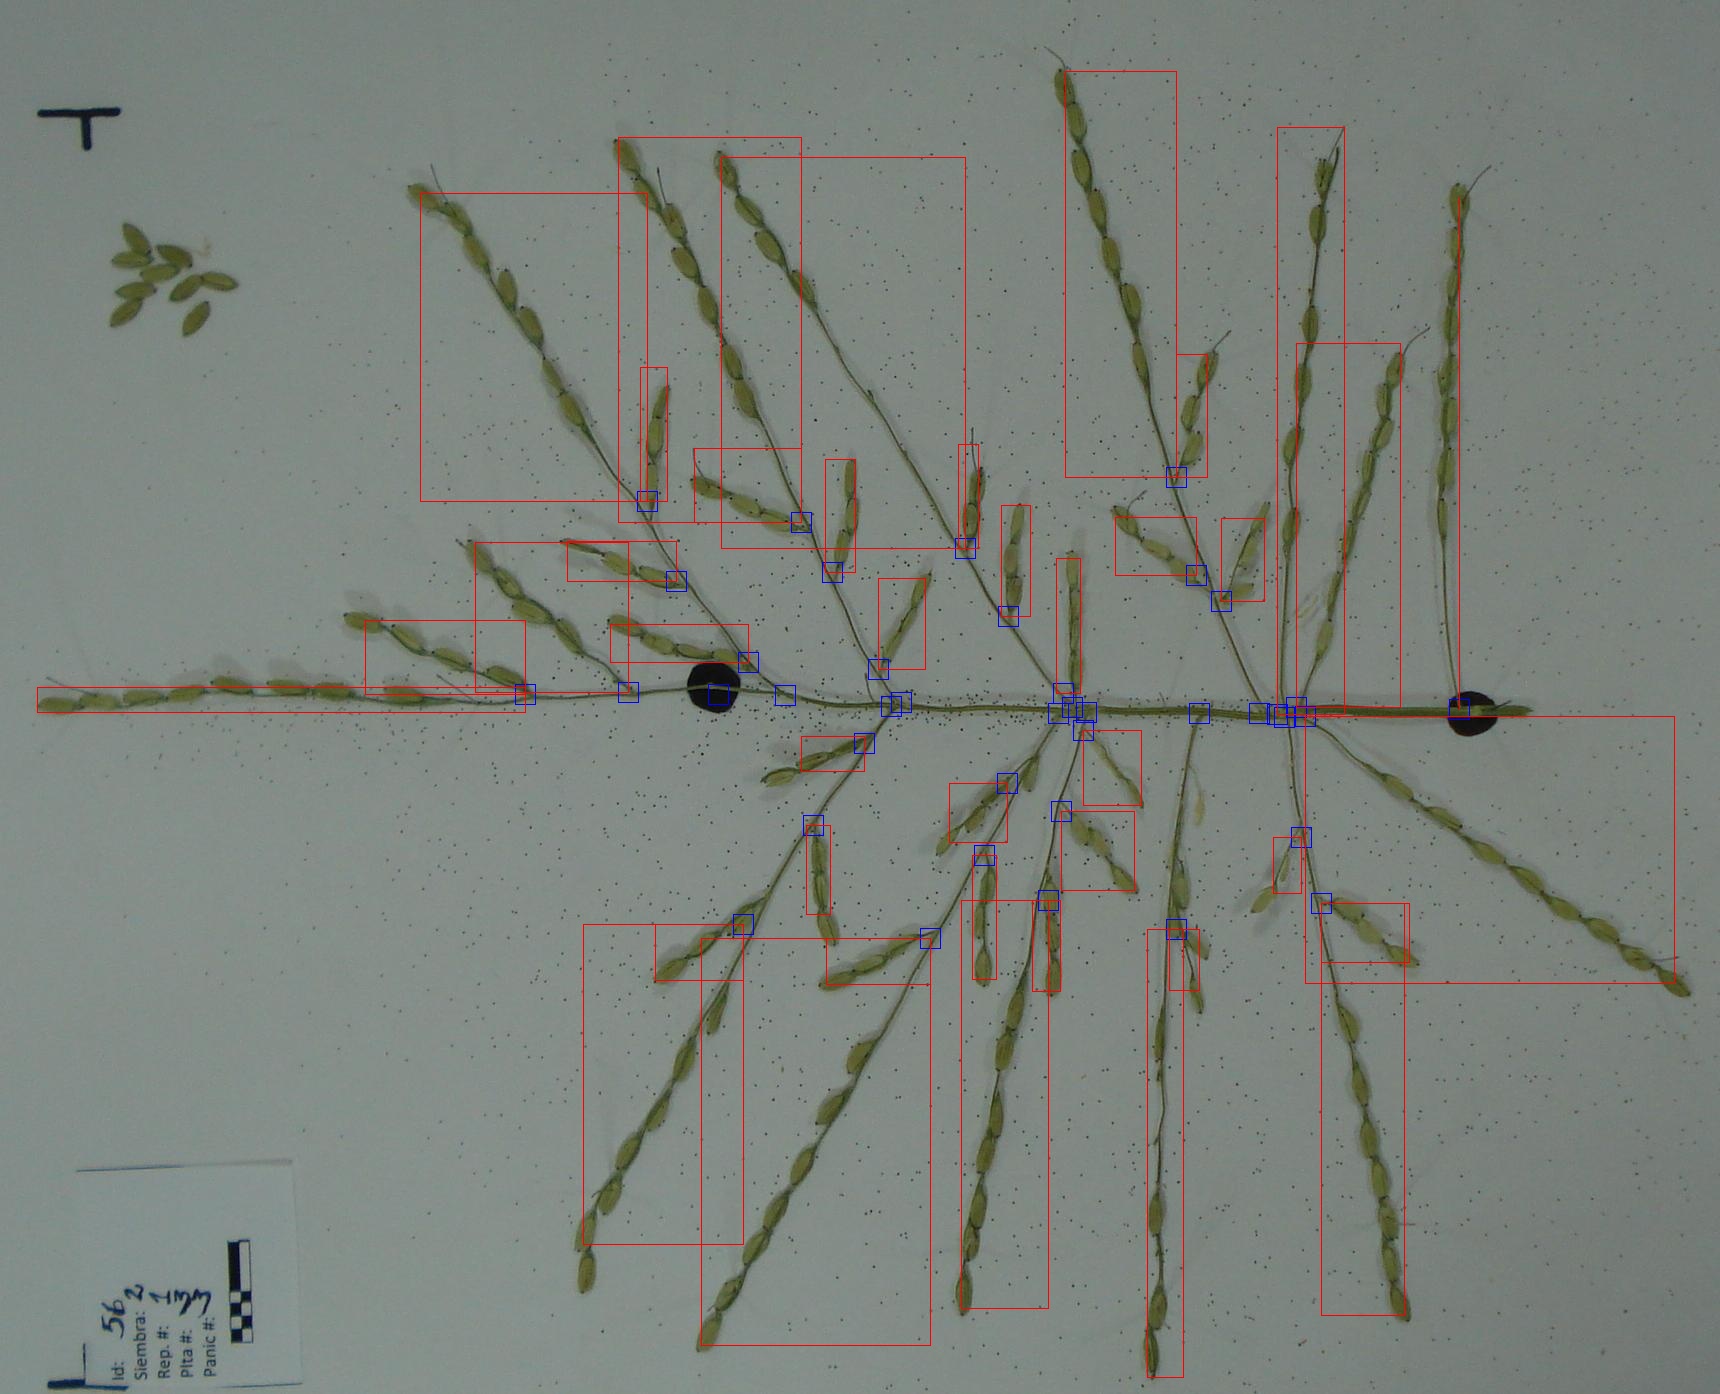 Id: 56
Siembra: 2
Rep. #: 1
Plta #: 3
Panic #: 3